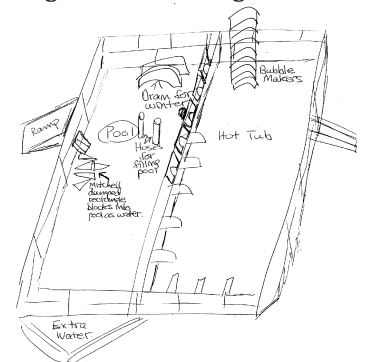 Drain for
winter
Bubble
Makers
Ramp
Pool
Hoses
for
filling
pool
Hot Tub
Mitchell
dumped
rectangle
blocks into
pool as water.
Extra
Water